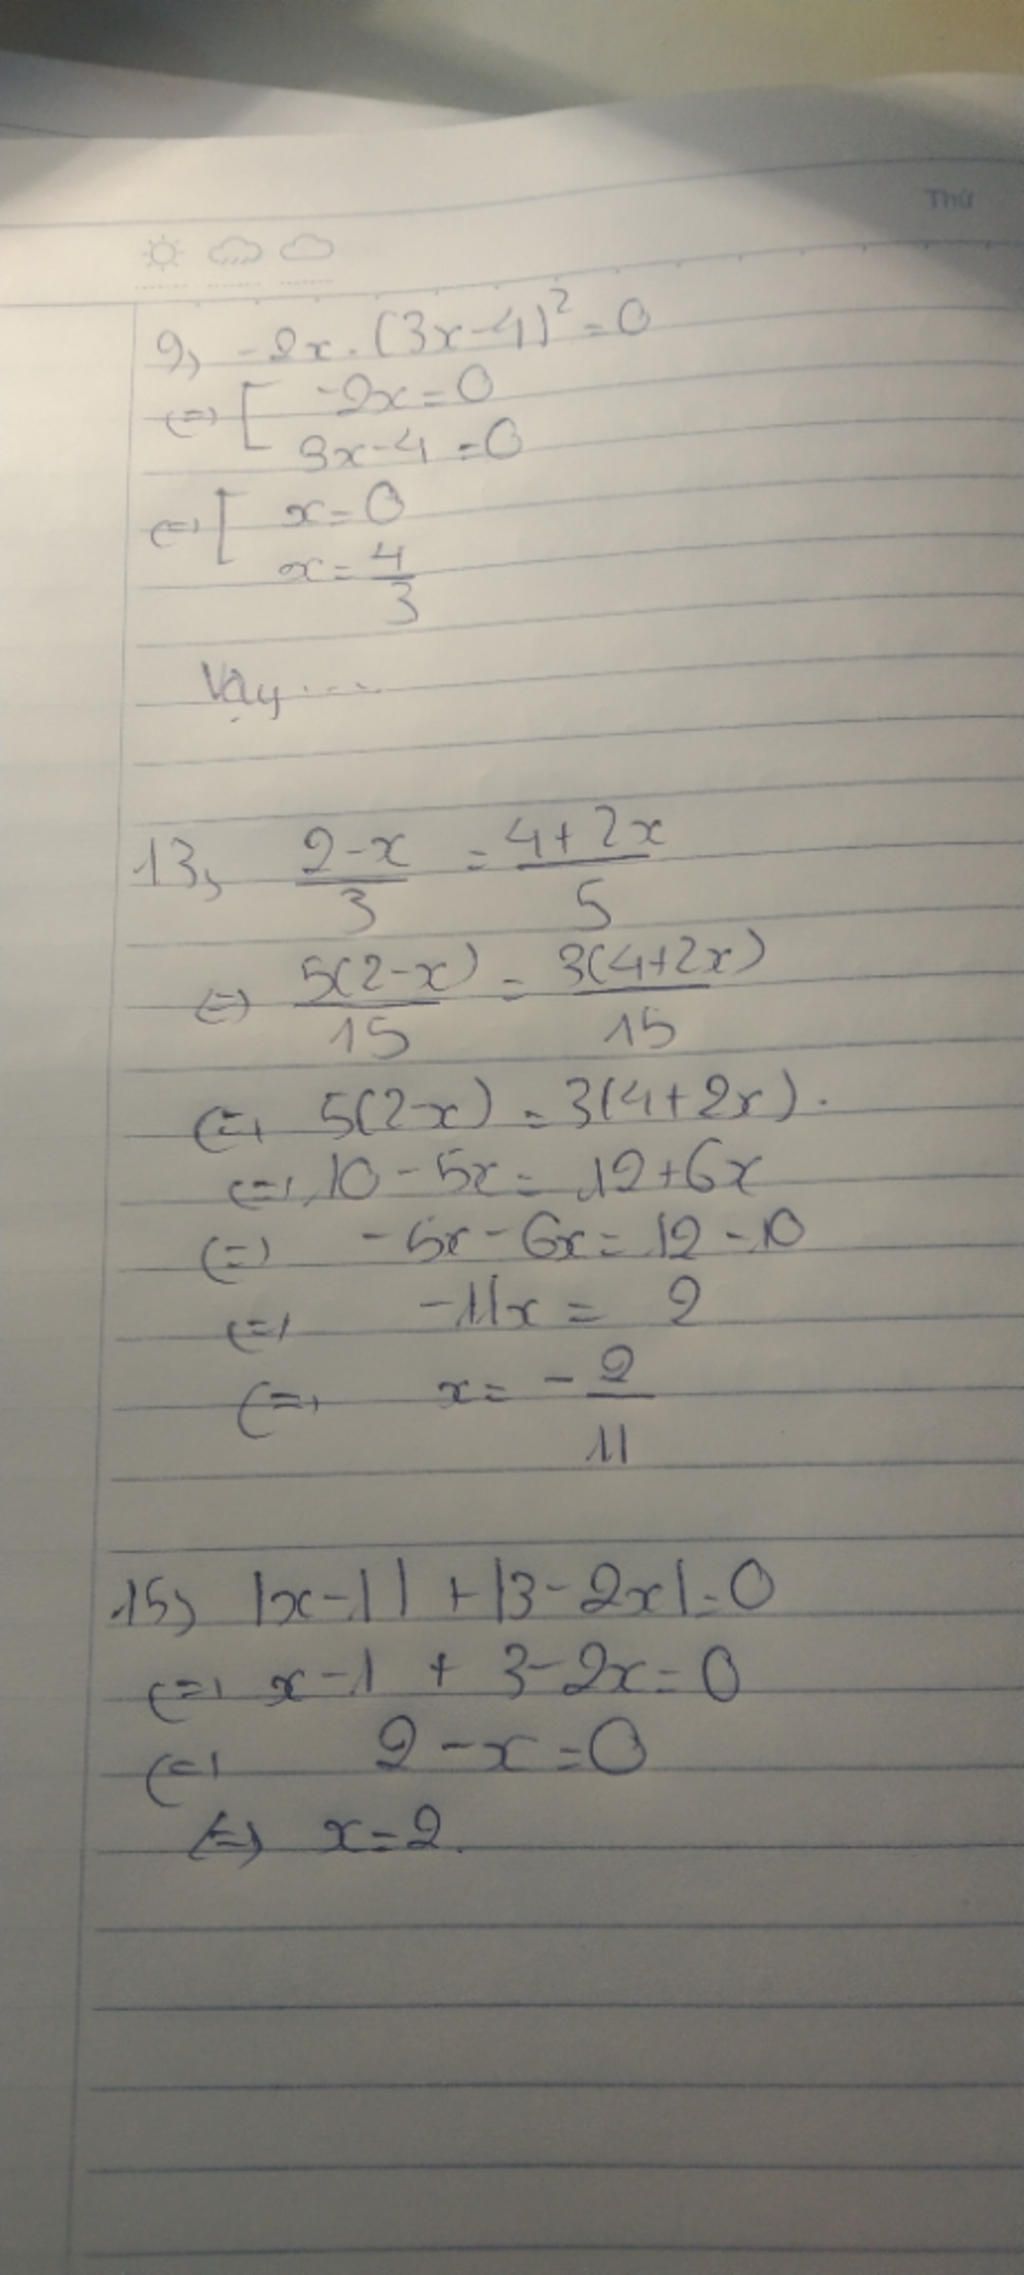 Thứ
9, -2x.(3x-4)²=0
(=) [ -2x=0
3x-4=0
(=) [ x=0
x=4/3
Vậy....
13, (2-x)/3 = (4+2x)/5
(=) 5(2-x)/15 = 3(4+2x)/15
(=) 5(2-x) = 3(4+2x).
(=) 10-5x = 12+6x
(=) -5x-6x = 12-10
(=) -11x = 2
(=) x = -2/11
15, |x-1| + |3-2x| = 0
(=) x-1 + 3-2x = 0
(=) 2-x=0
(=) x=2.